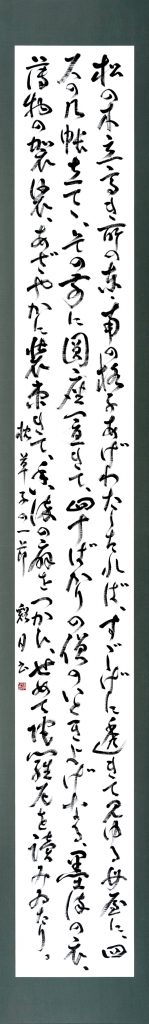 松の木立高き所の東南の格子あげわたしたれば、すゞしげに透きて見ゆる母屋に、四
尺の几帳立てゝ、その前に円座置きて、四十ばかりの僧のいときよげなる、墨染の衣、
薄物の袈裟、あざやかに装束きて、香染の扇をつかひ、せめて陀羅尼を読みゐたり。
枕草子の一節